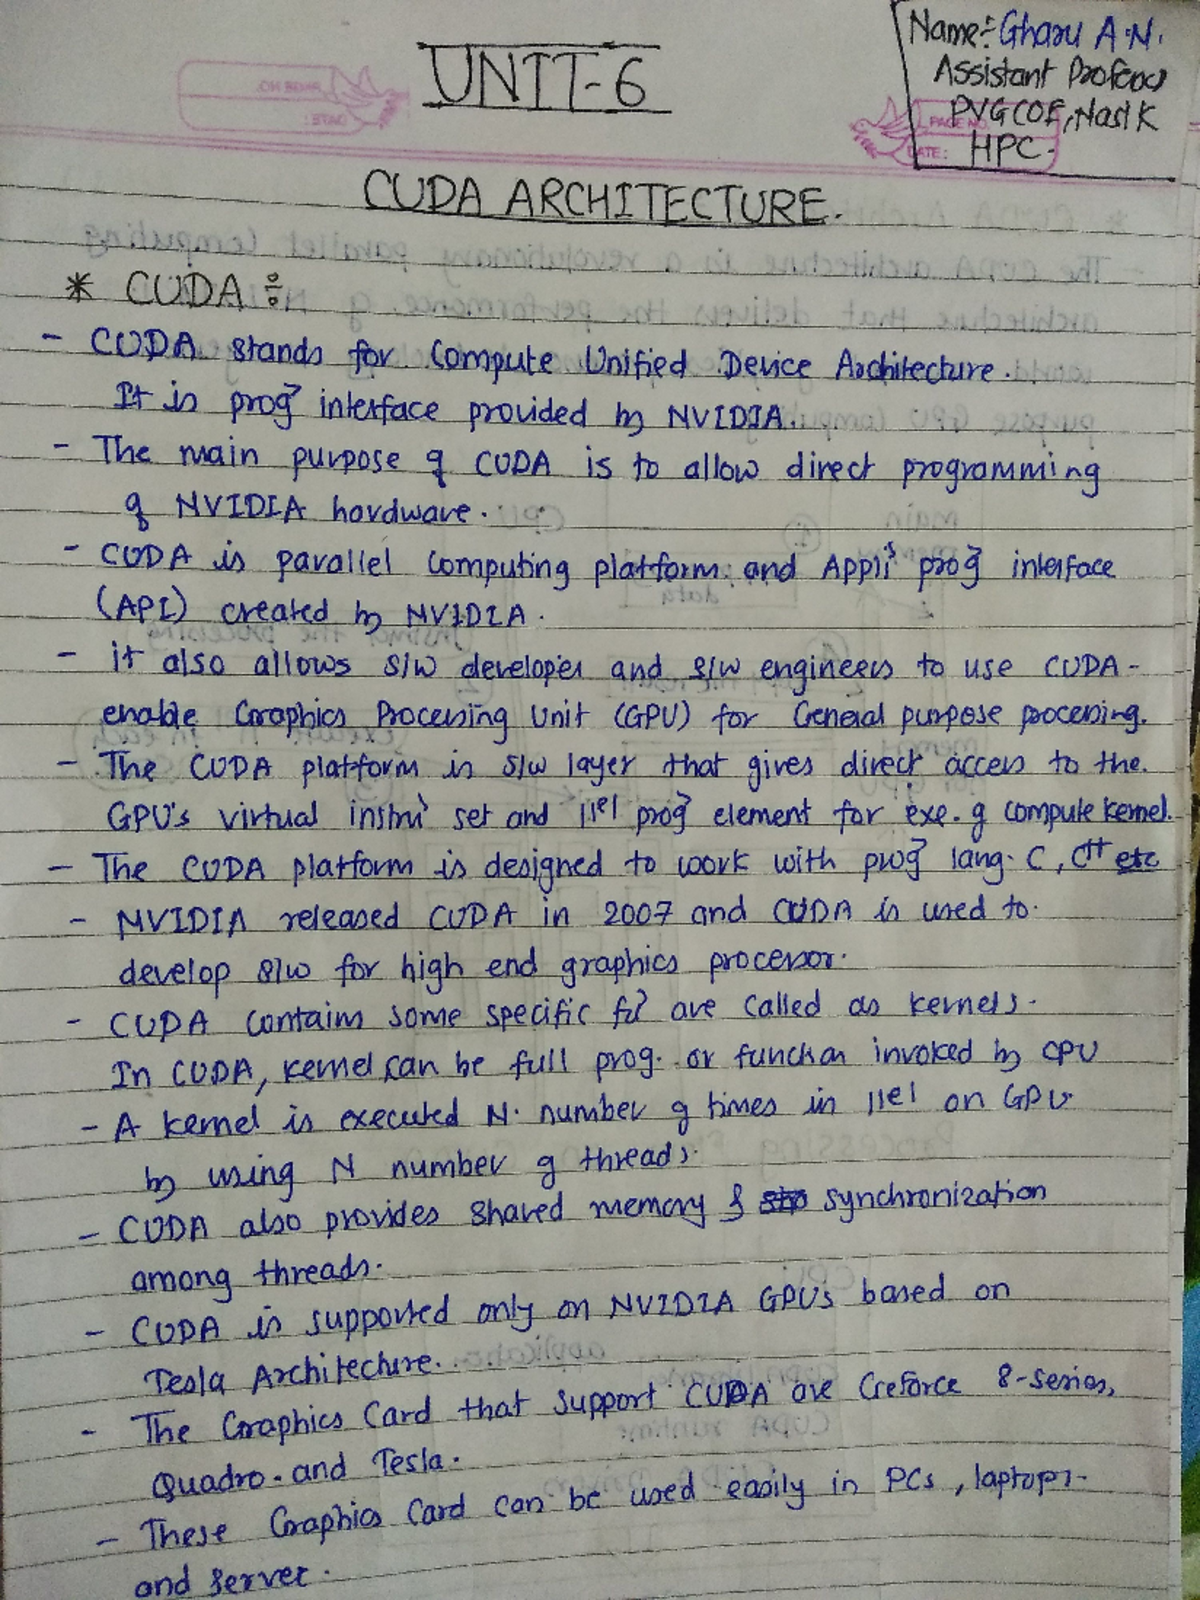 UNIT-6
Name:- Gharu A.N.
Assistant Profenor
PVGCOE, Nasik
HPC.
PAGE NO.
DATE:
CUDA ARCHITECTURE.
* CUDA :
- CUDA stands for Compute Unified Device Architecture.
It is prog interface provided by NVIDIA.
- The main purpose of CUDA is to allow direct programming
of NVIDIA hardware.
- CUDA is parallel computing platform and Appliˢ prog interface
(API) created by NVIDIA.
- it also allows S/W developer and S/W engineers to use CUDA-
enable Graphics Processing Unit (GPU) for General purpose processing.
- The CUDA platform is S/W layer that gives direct access to the
GPU's virtual instru set and ||el prog element for exe. of compute kernel.
- The CUDA platform is designed to work with prog lang. C, C++ etc
- NVIDIA released CUDA in 2007 and CUDA is used to
develop S/W for high end graphics processor.
- CUDA contains some specific fu are called as kernels.
In CUDA, kernel can be full prog. or function invoked by CPU
- A kernel is executed N. number of times in ||el on GPU
by using N number of threads.
- CUDA also provides shared memory & synchronization
among threads.
- CUDA is supported only on NVIDIA GPUs based on
Tesla Architecture.
- The Graphics Card that support CUDA are Geforce 8-series,
Quadro and Tesla.
- These Graphics Card can be used easily in PCs, laptops
and server.